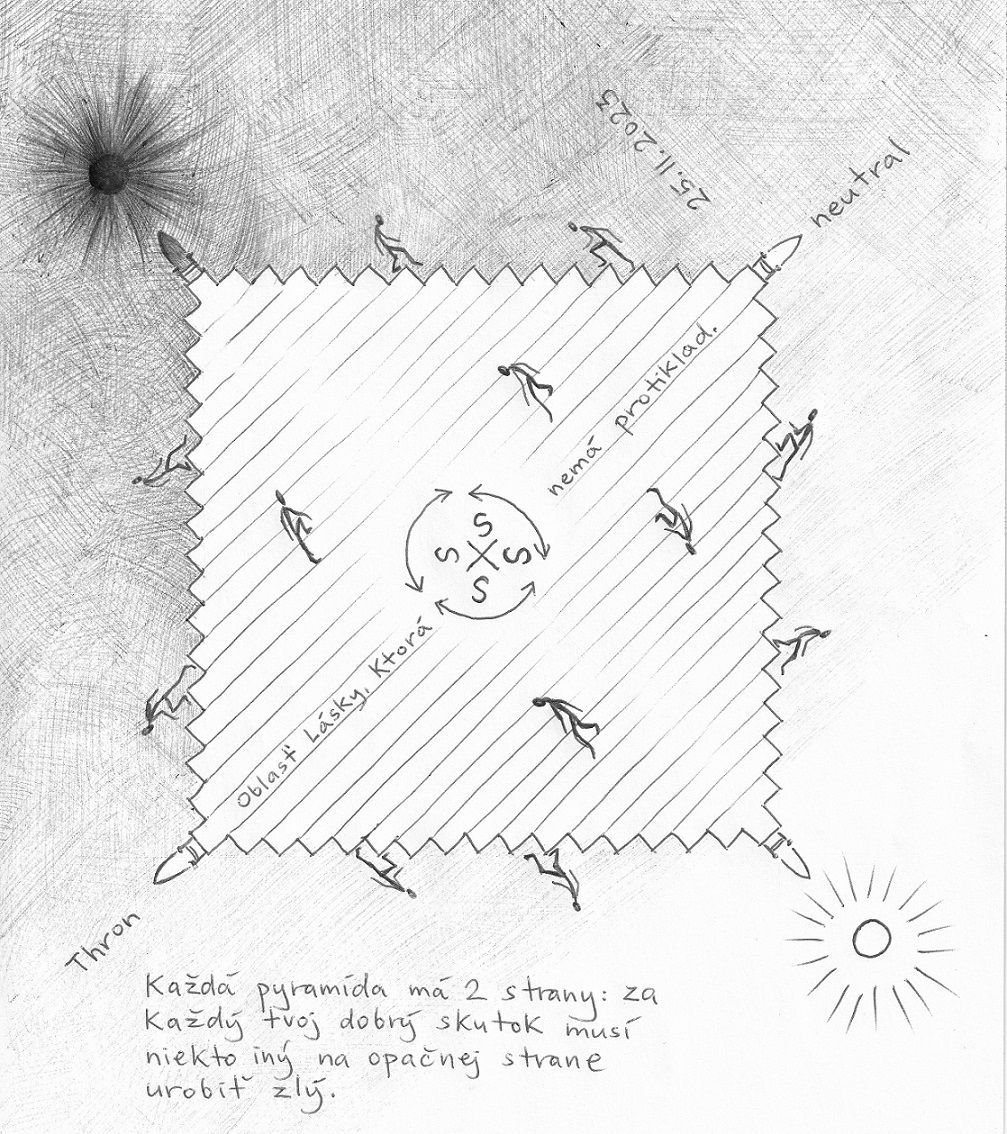 25.11.2023
neutral
nemá protiklad.
S
S S
S
Oblasť Lásky, Ktorá
Thron
Každá pyramída má 2 strany: za
Každý tvoj dobrý skutok musí
niekto iný na opačnej strane
urobiť zlý.